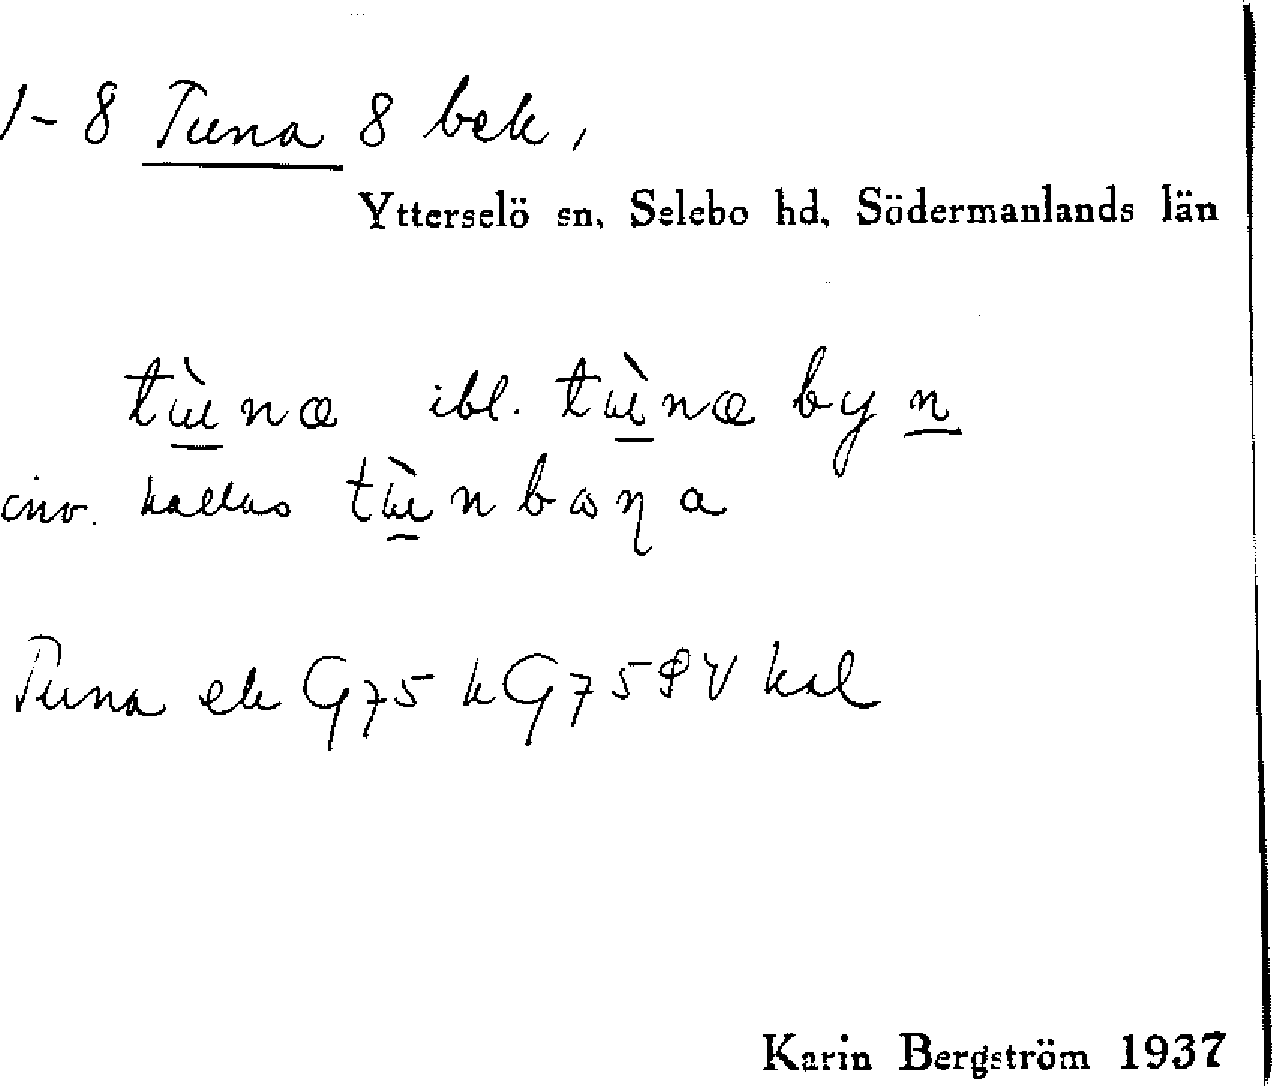 1-8 Tuna 8 bek,
Ytterselö sn, Selebo hd, Södermanlands län
tɯ̀nœ ibl. tɯ̀nœ by n
inv. kallas tɯ̀nboŋa
Tuna ek G75 kG75SV kal
Karin Bergström 1937